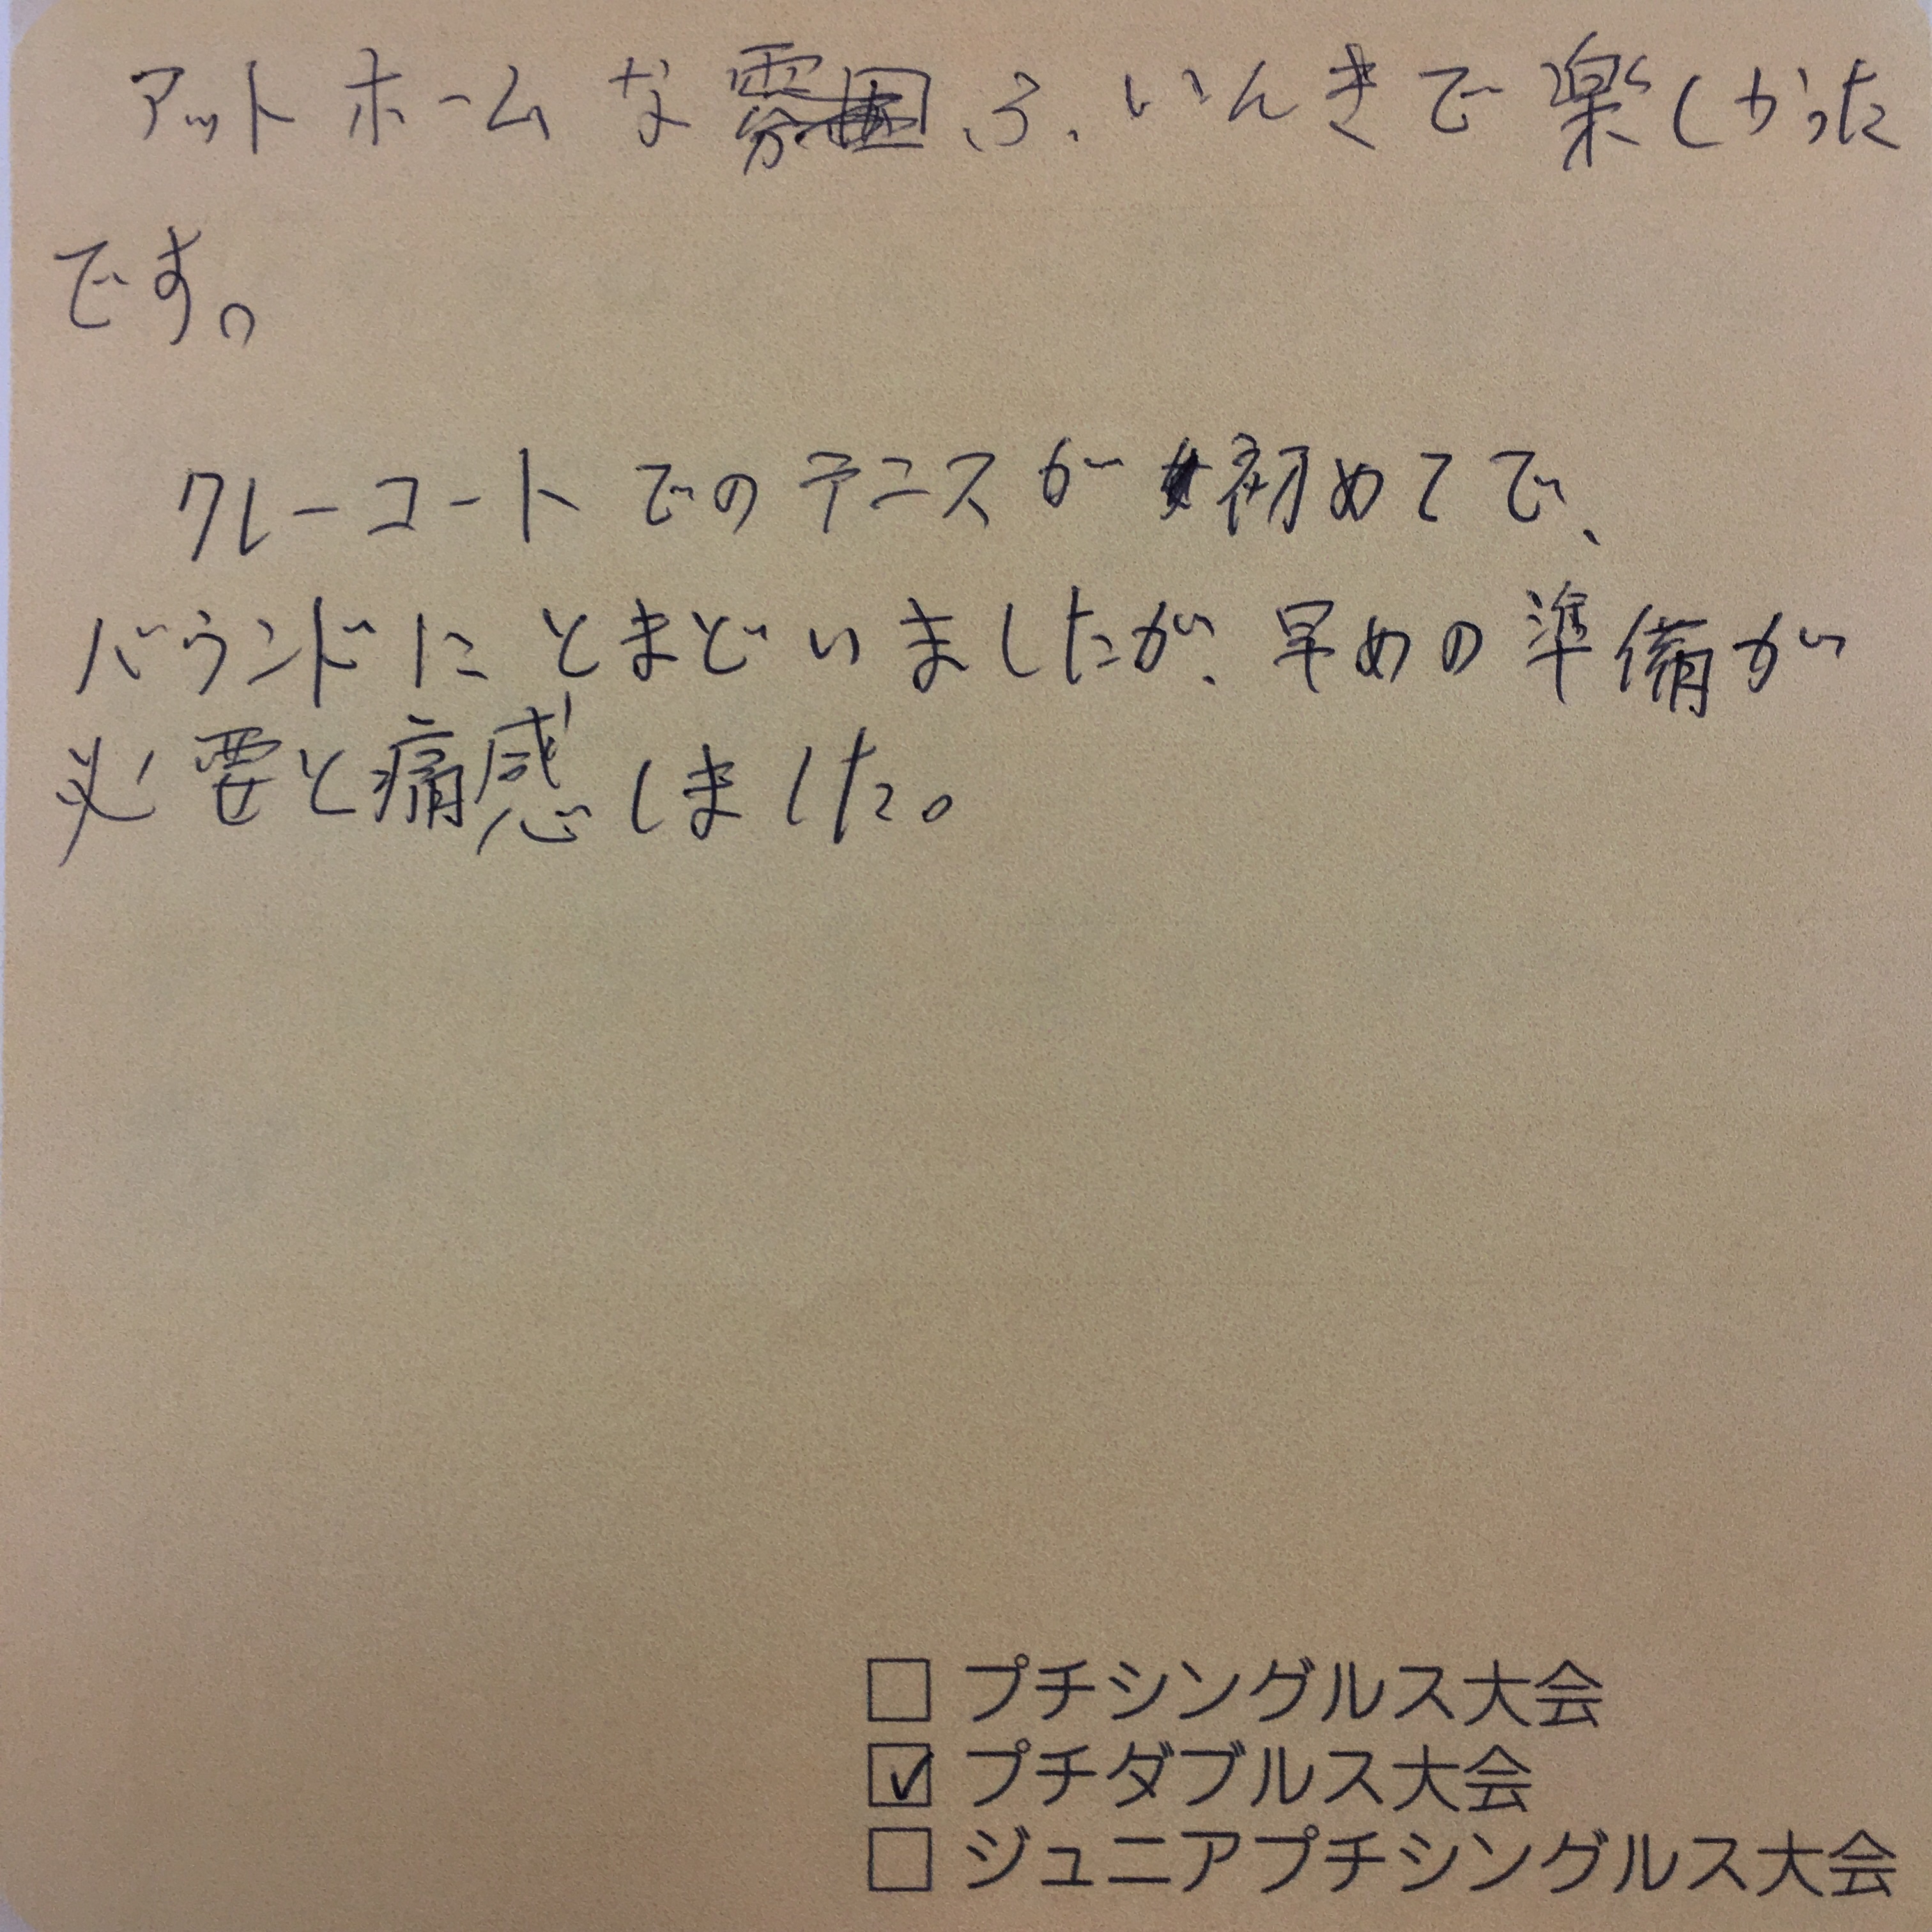 アットホームなふいんきで楽しかった
です。
クレーコートでのテニスが初めてで、
バウンドにとまどいましたが、早めの準備が
必要と痛感しました。
□ プチシングルス大会
☑ プチダブルス大会
□ ジュニアプチシングルス大会